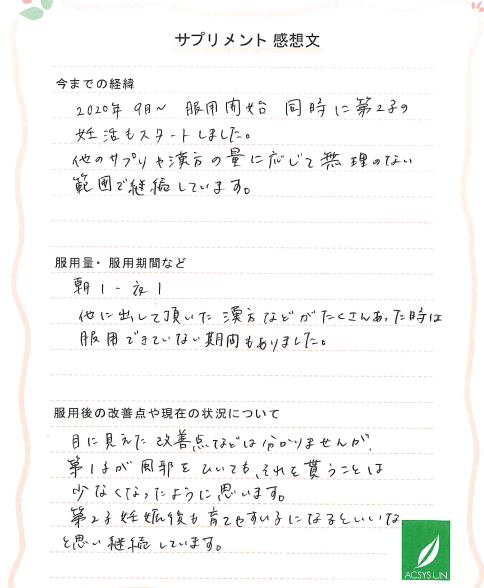 サプリメント 感想文
今までの経緯
2020年 9月~ 服用開始 同時に第2子の
妊活もスタートしました。
他のサプリや漢方の量に応じて無理のない
範囲で継続しています。
服用量・服用期間など
朝1-夜1
他に出して頂いた漢方などがたくさんあった時は
服用できていない期間もありました。
服用後の改善点や現在の状況について
目に見えた改善点などは分かりませんが、
第1子が風邪をひいても、それを貰うことは
少なくなったように思います。
第2子妊娠後も育てやすい子になるといいな
と思い継続しています。
ACSYSUN